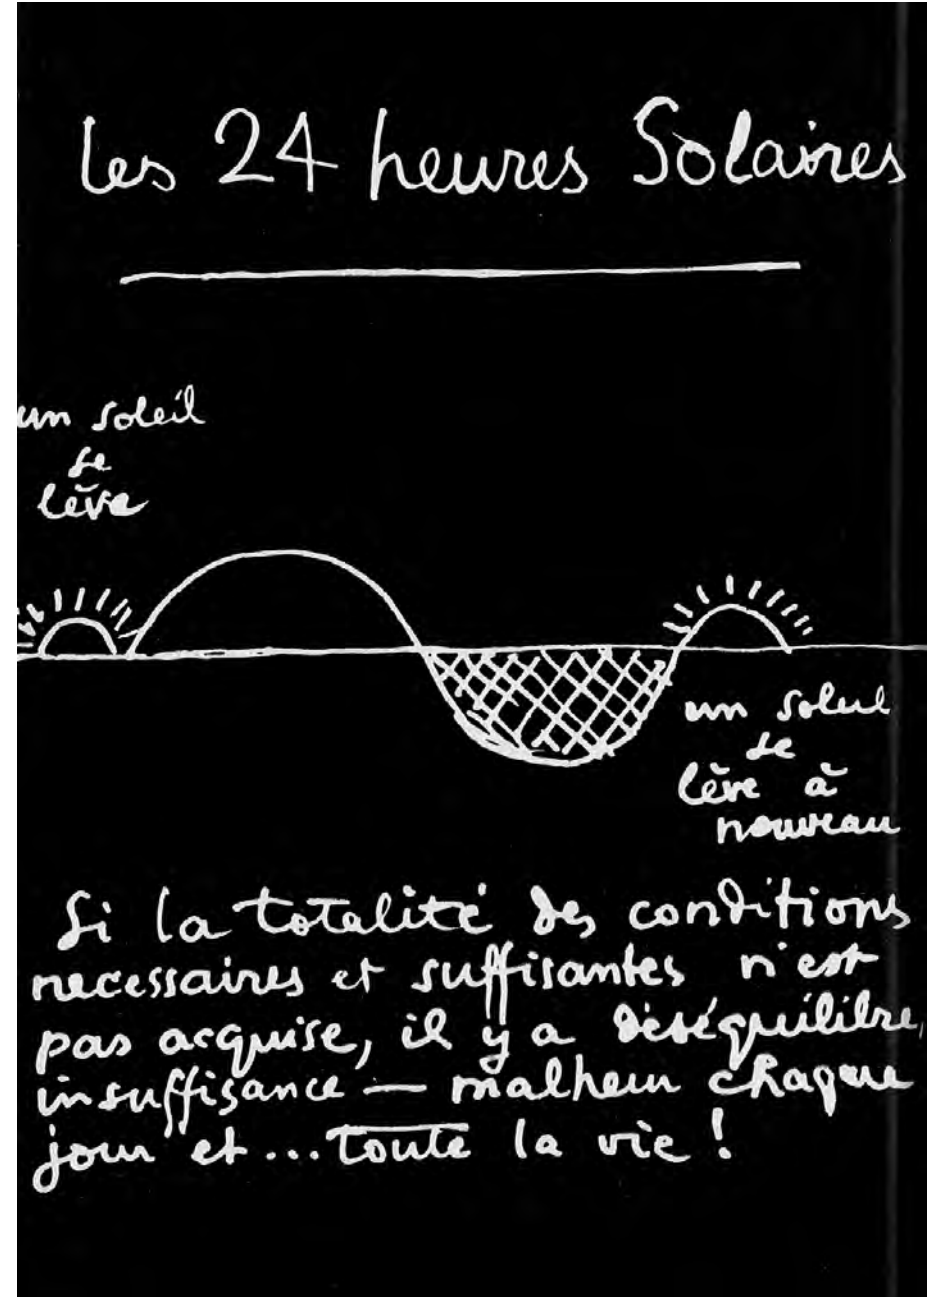 les 24 heures Solaires
un soleil
se
lève
un soleil
se
lève à
nouveau
Si la totalité des conditions
necessaires et suffisantes n'est
pas acquise, il y a déséquilibre,
insuffisance — malheur chaque
jour et... toute la vie !